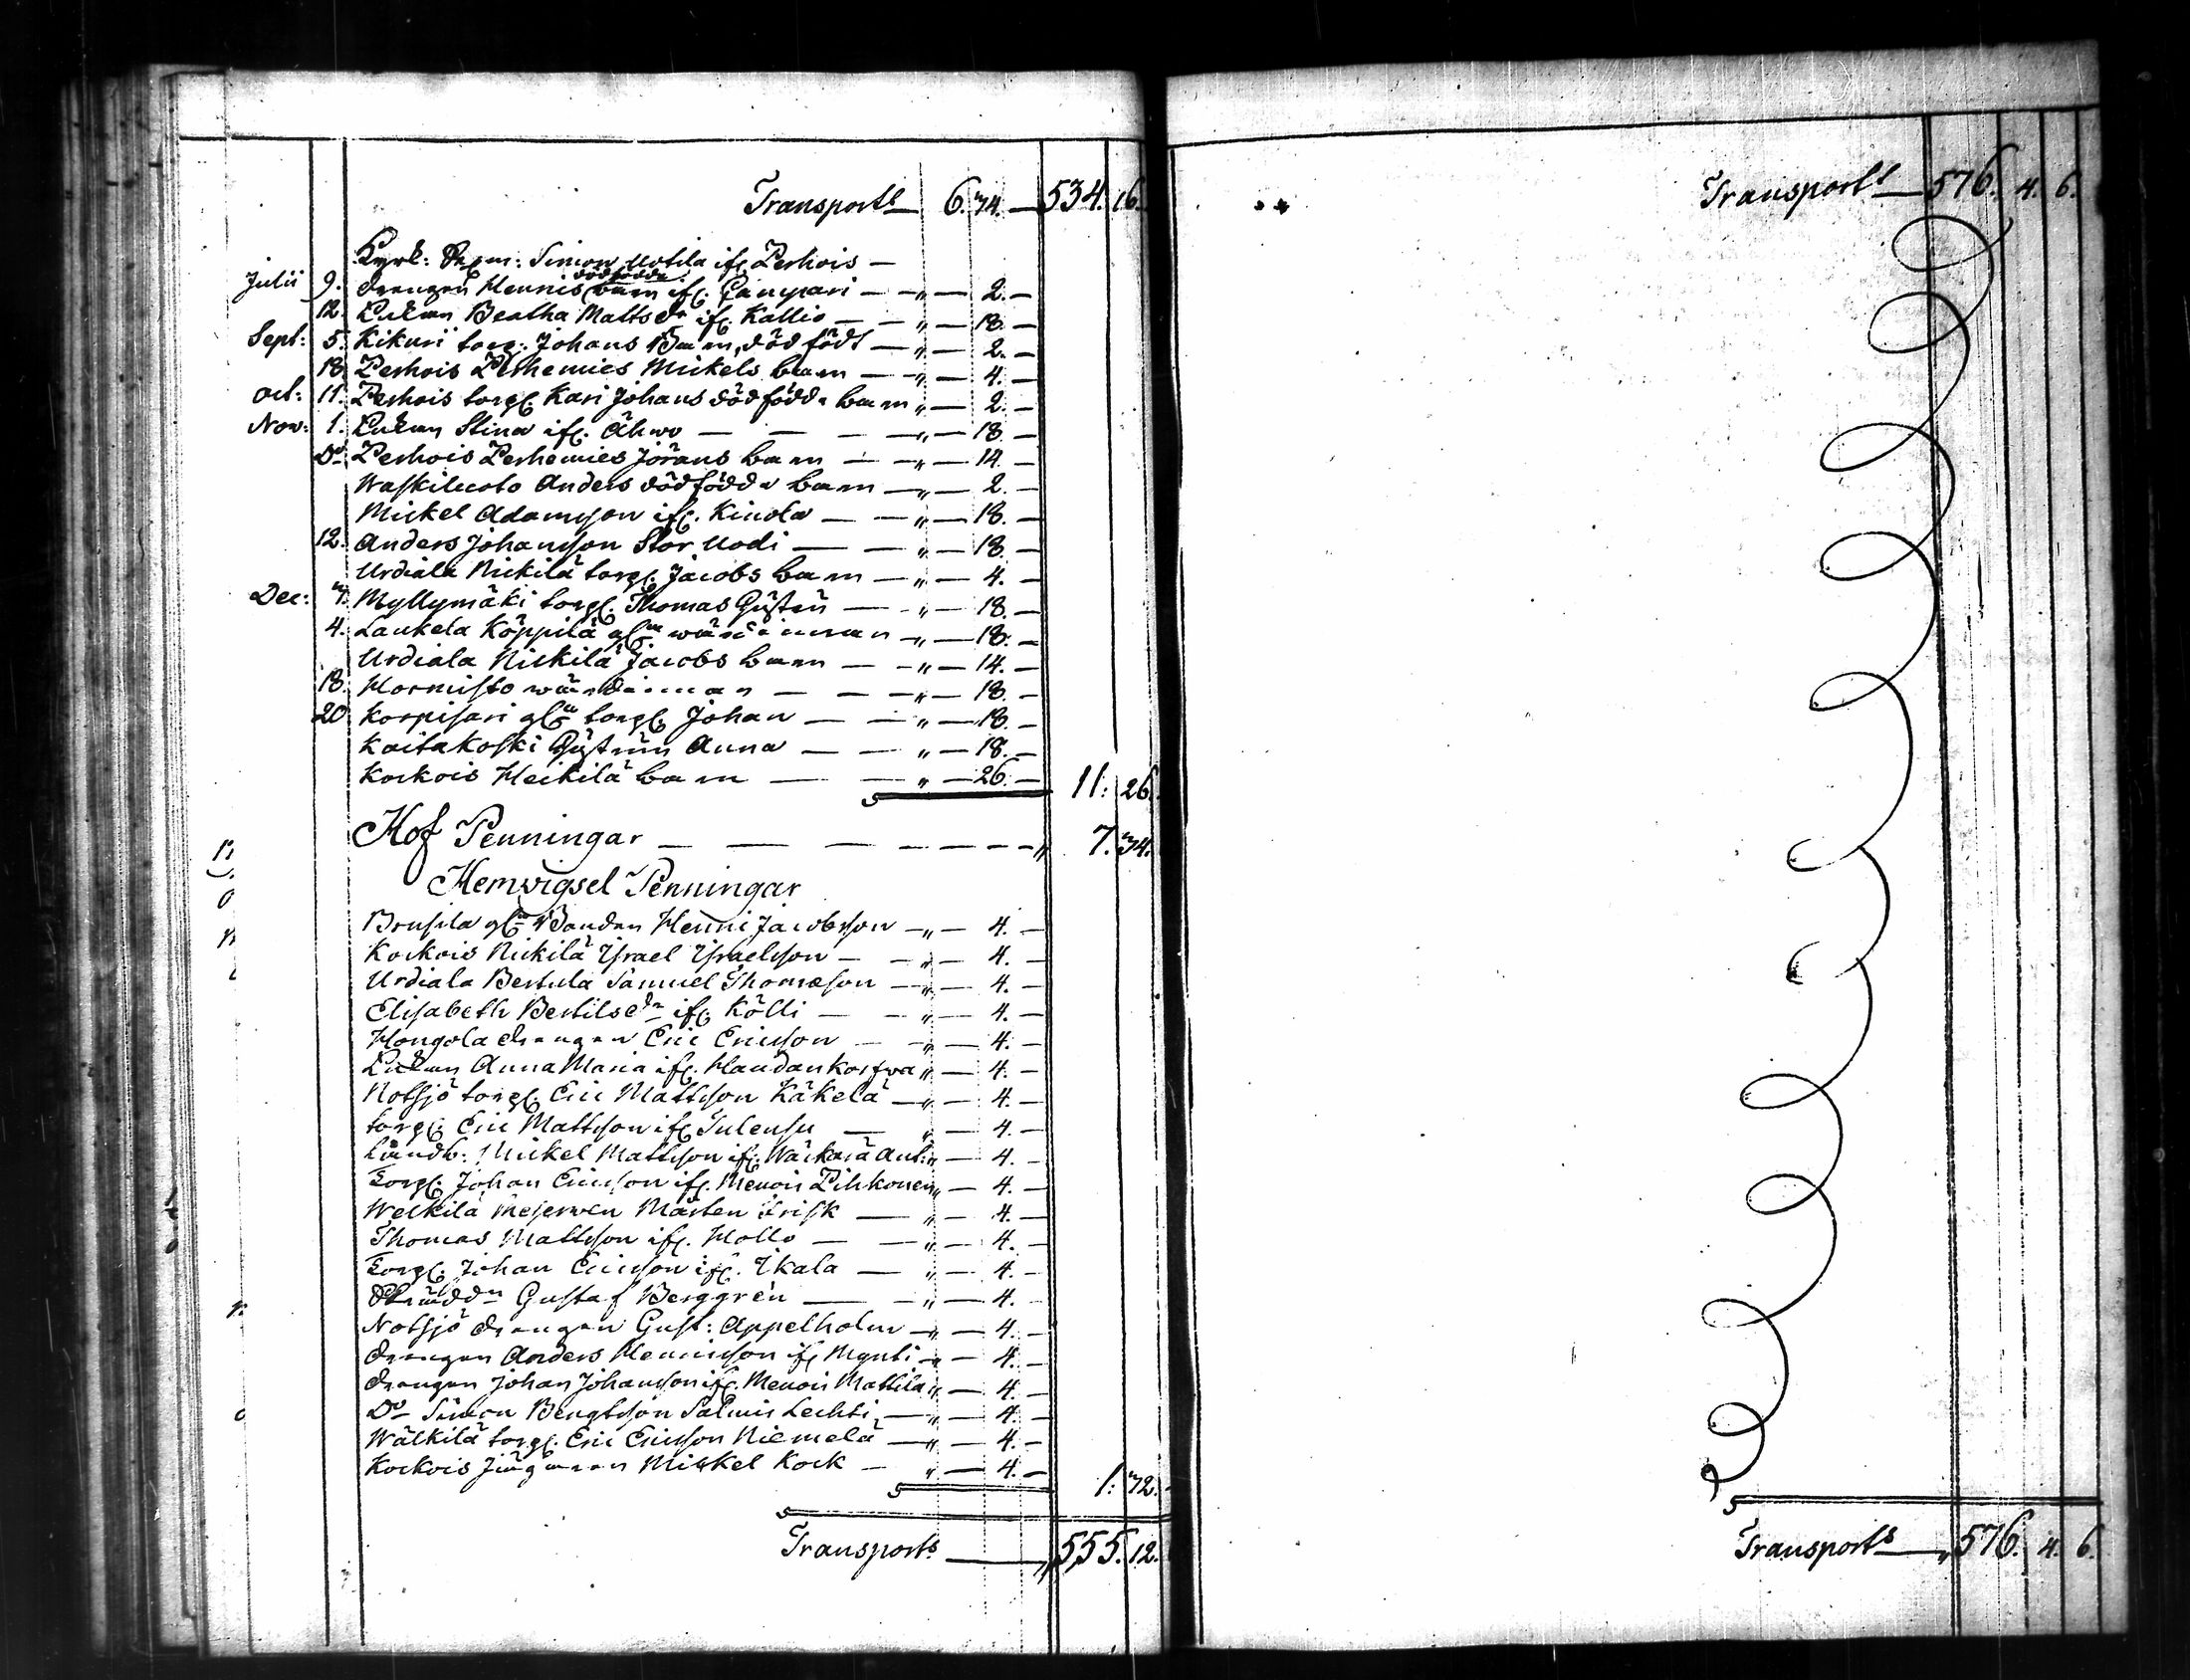 Transport 6. 74. 534. 16.
Kyrk: Simon Uotila ifr. Perhois
Julii 9. drengen Hennis dödfödde barn ifr. 2.
12. Beatha Mattsdr ifr. Kallio 18.
Sept: 5. Kikuri torp. Johans Barn, död född 2.
18. Perhois Perhemies Mickels barn 4.
Oct: 11. Perhois torp. Kari Johans dödfödde barn 2.
Nov: 1. Stina ifr. Ähwo 18.
Do. Perhois Perhemies Jörans barn 14.
Waskiluoto Anders dödfödde barn 2.
Mickel Adamsson ifr. Kinola 18.
12. Anders Johansson Stor Uodi 18.
Urdiala Nickilä torp. Jacobs barn 4.
Dec: 7. Myllymäki torp. Thomas 18.
4. Laukela Köppilä 18.
Urdiala Nickilä Jacobs barn 14.
18. Hormisto 18.
20 Korpisari torp. Johan 18.
Kaitakoski Anna 18.
Korkois Heikilä barn 26. 11: 26.
Hof Penningar 7. 74.
Hemvigsel Penningar
Brusila Bonden Henric Jacobsson 4.
Korkois Nickilä Israel Israelsson 4.
Urdiala Bertula Samuel Thomæson 4.
Elisabeth Bertilsdr ifr. Kölli 4.
Hongola drengen Eric Ericsson 4.
Anna Maria ifr. Haudankorfwa 4.
Notsjö torp. Eric Mattsson Käkelä 4.
torp. Eric Mattsson ifr. Sulensu 4.
Mickel Mattsson ifr. 4.
Torp. Johan Ericsson ifr. Menois Pihkonen 4.
Welkilä Mårten Frisk 4.
Thomas Mattsson ifr. Hollo 4.
Torp. Johan Ericsson ifr. Ikala 4.
Gustaf Berggrén 4.
Notsjö drengen Gust: Appelholm 4.
drengen Anders Henricsson ifr. 4.
drengen Johan Johansson ifr. Menois Mattila 4.
Do Simon Bengtsson Salmis Lechti 4.
Wälkilä torp. Eric Ericsson Niemelä 4.
Korkois Mickel Kock 4. 1: 72.
Transport 555. 12.
Transport 576. 4. 6.
Transport 576. 4. 6.